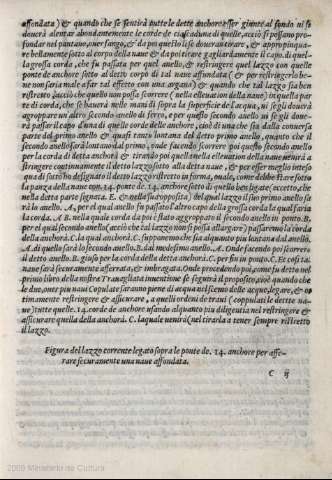 affondata) & quando che se sentirà tutte le dette anchore esser gionte al fondo ni se
douerà alentar abondantemente le corde de ciascaduna di quelle, acciò si possano pro-
fondar nel pantano, ouer fango, & da poi questo li se douerà tirare, & approppinqua-
re bellamente sotto al corpo della naue & da poi tirare gagliardamente il capo di quel-
la grossa corda, che fu passata per quel anello, & restringere quel lazzo con quelle
ponte de anchore sotto al detto corpo di tal naue affondata (& per restringerlo be-
ne non saria male a far tal effetto con una argana) & quando che tal lazzo sia ben
ristretto, acciò che quello non possa scorrere (nella elleuation della naue) in quella par
te di corda, che se hauerà nelle mani di sopra la superficie de l'acqua, ui se gli douerà
agroppare un altro secondo anello di ferro, e per questo secondo anello ui se gli doue-
rà passar il capo d'una di quelle corde delle anchore, cioè di una che sia dalla conuersa
parte del primo anello & quasi tanto lontana dal detto primo anello, quanto che il
secondo anello sarà lontano dal primo, onde facendo scorrere poi questo secondo anello
per la corda della detta anchorà & tirando poi quella nella elleuation della naue uenirà a
stringere continuamente il detto lazzo sotto alla detta naue, & per esser meglio inteso
qua di sotto ho designato il detto lazzo ristretto in forma ouale, come debbe star sotto
la panza della naue con .14. ponte de .14. anchore sotto di quello ben legate (eccetto, che
nella detta parte segnata. E. & nella sua opposita) del qual lazzo il suo primo anello sa
rà lo anello. A, per el qual anello fu passato l'altro capo della grossa corda la qual sarà
la corda. A B. nella quale corda da poi è stato aggroppato il secondo anello in ponto. B.
per el qual secondo anello (acciò che tal lazzo non si possa allargare) passaremo la corda
della anchorà. C. la qual anchorà. C. supponemo che sia alquanto piu lontana dal anello.
A. di quello sarà lo secondo anello. B. dal medesimo anello. A. Onde facendo poi scorrere
il detto anello. B. giuso per la corda della detta anchorà. C. per fin in ponto. C. Et cosi tal
naue sarà securamente afferrata, & imbragata. Onde procedendo poi, come fu detto nel
primo libro della nostra Trauagliata inuentione se seguirà il proposito, cioè quando che
le due, ouer piu naui Copulate saranno piene di acqua nel seno delle acque, legare, & ot
timamente restringere & assicurare, a quelli ordeni de traui (coppulati le dette na-
ue) tutte quelle .14. corde de anchore usando alquanto piu diligentia nel restringere &
assicurare quella della anchorà. C. la quale uenirà (nel tirarla a tener sempre ristretto
il lazzo.
Figura del lazzo corrente legato sopra le ponte de .14. anchore per affe-
rare securamente una naue affondata.
C ij
2009 Ministerio de Cultura